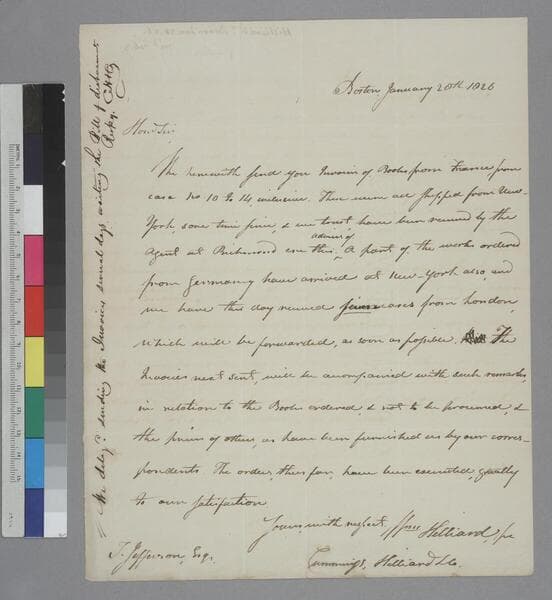 Boston, January 20th 1826
Hon. Sir
We herewith find you Invoices of Books from France from
case No 10 to 14 inclusive. These were all shipped from New-
York, some time since, & we trust have been received by the
advise of
Agent at Richmond ere this. A part of the works ordered
from Germany have arrived at New-York also, and
we have this day received cases from London,
which will be forwarded, as soon as possible. The
Invoices next sent, will be accompanied with such remarks,
in relation to the Books ordered, & not to be procured, &
the prices of others, as have been furnished us by our corres-
pondents. The orders, thus far, have been executed, greatly
to our satisfaction
Yours, with respect, Wm Hilliard, for
T. Jefferson, Esq.
Cummings, Hilliard & Co.
We delayd. sending the Invoices several days waiting the Bill of disbursments